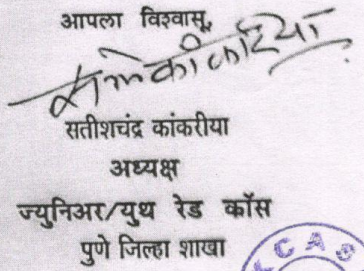 आपला विश्वासू,
सतीशचंद्र कांकरीया
अध्यक्ष
ज्युनिअर/युथ रेड कॉस
पुणे जिल्हा शाखा